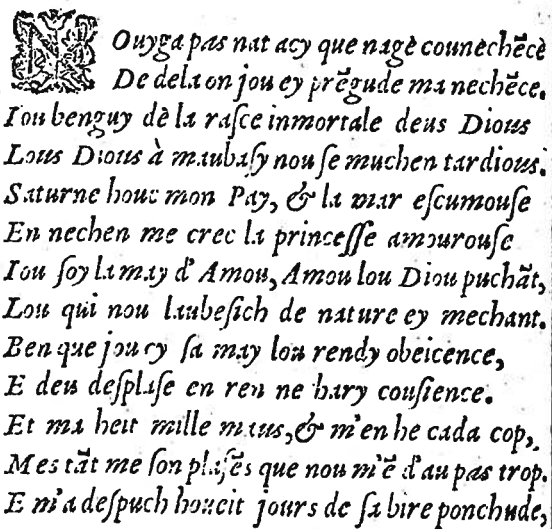 NOuyga pas nat acy que nagè counechẽcè
De dela on jou ey prẽgude ma nechẽce.
Iou benguy dè la rasce inmortale deus Dious
Lous Dious à maubasy nou se muchen tardious.
Saturne houc mon Pay, & la mar escumouse
En nechen me crec la princesse amourouse
Iou soy la may d'Amou, Amou lou Diou puchãt,
Lou qui nou laubesich de nature ey mechant.
Ben que jou ey sa may lou rendy obeicence,
E deu desplase en ren ne hary cousience.
Et ma heit mille maus, & m'en he cada cop,
Mes tãt me son plasẽs que nou m'ẽ d'au pas trop.
E m'a despuch houeit jours de sa bire ponchude,